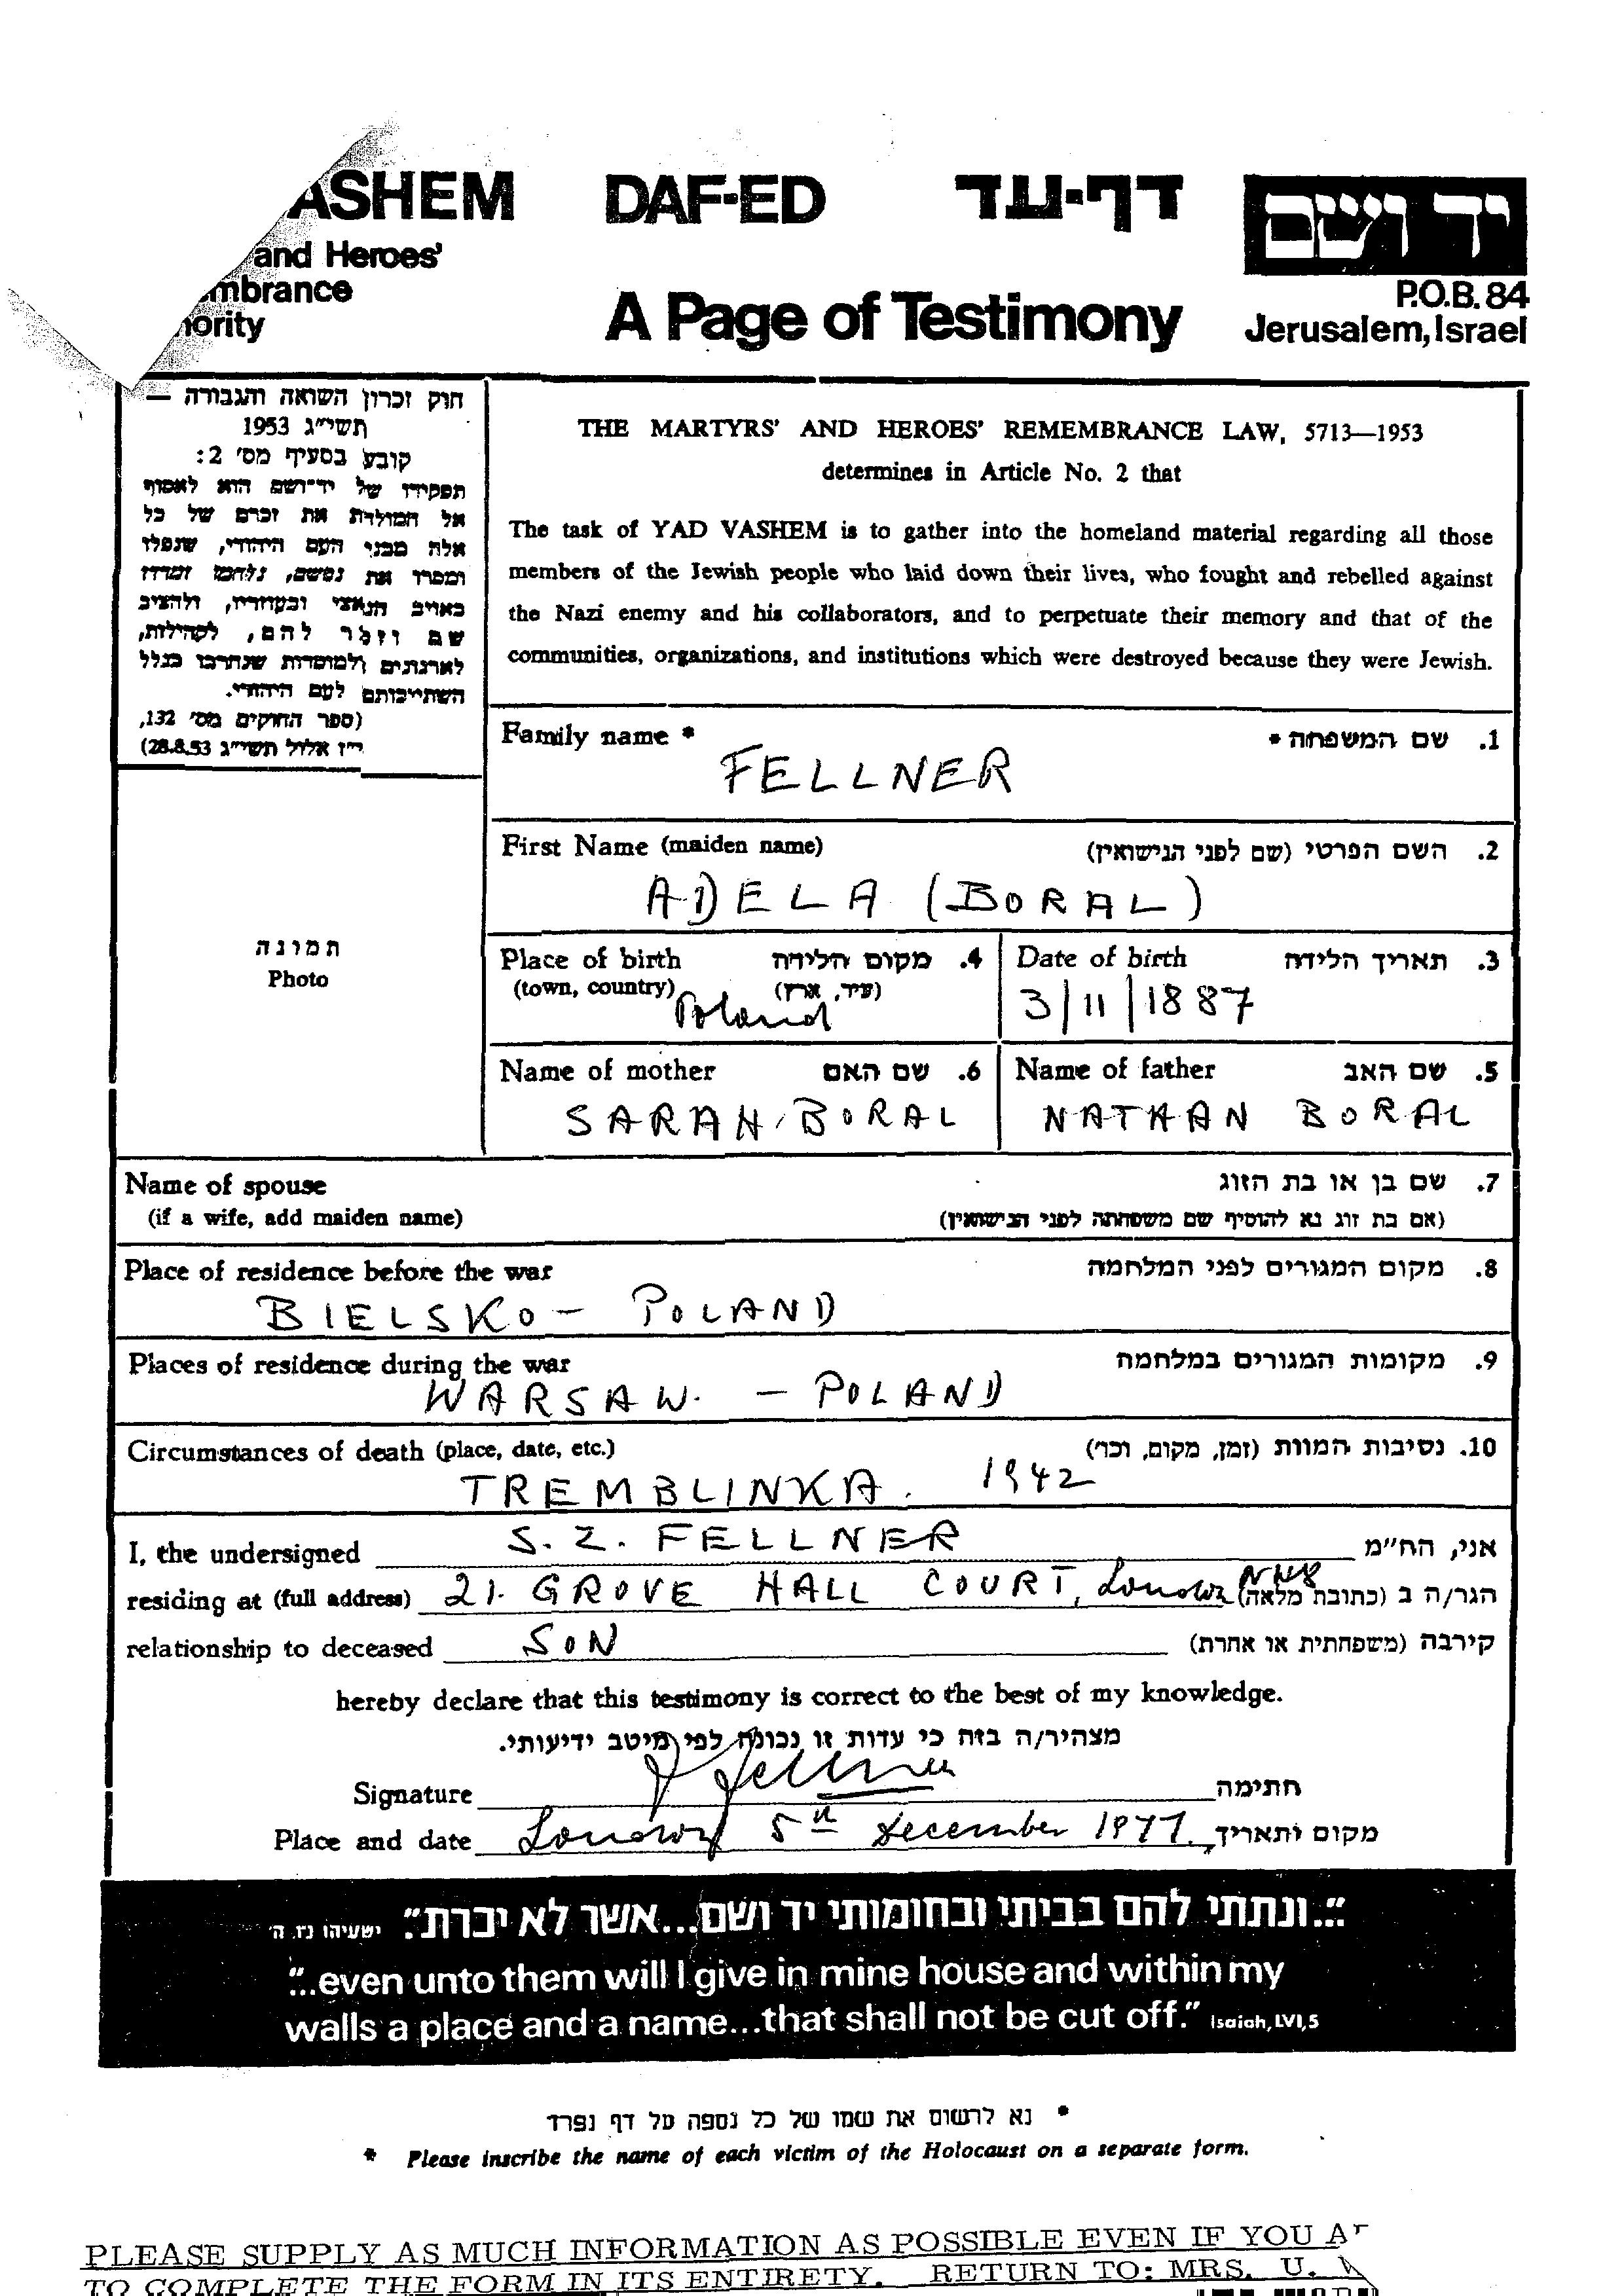 ASHEM DAF-ED דף-עד יד ושם
and Heroes'
mbrance P.O.B. 84
ority A Page of Testimony Jerusalem, Israel
חוק זכרון השואה והגבורה —
תשי״ג 1953
קובע בסעיף מס׳ 2:
תפקידו של יד־ושם הוא לאסוף
אל המולדת את זכרם של כל
אלה מבני העם היהודי, שנפלו
ומסרו את נפשם, נלחמו ומרדו
באויב הנאצי ובעוזריו, ולהציב
שם וזכר להם, לקהילות,
לארגונים ולמוסדות שנחרבו בגלל
השתייכותם לעם היהודי.
(ספר החוקים מס׳ 132,
י״ז אלול תשי״ג 28.8.53)
THE MARTYRS' AND HEROES' REMEMBRANCE LAW, 5713—1953
determines in Article No. 2 that
The task of YAD VASHEM is to gather into the homeland material regarding all those
members of the Jewish people who laid down their lives, who fought and rebelled against
the Nazi enemy and his collaborators, and to perpetuate their memory and that of the
communities, organizations, and institutions which were destroyed because they were Jewish.
Family name * 1. שם המשפחה *
FELLNER
First Name (maiden name) 2. השם הפרטי (שם לפני הנישואין)
ADELA (BORAL)
תמונה
Photo
Place of birth 4. מקום הלידה
(town, country) (עיר, ארץ)
Poland
Date of birth 3. תאריך הלידה
3/11/1887
Name of mother 6. שם האם
SARAH BORAL
Name of father 5. שם האב
NATHAN BORAL
Name of spouse 7. שם בן או בת הזוג
(if a wife, add maiden name) (אם בת זוג נא להוסיף שם משפחתה לפני הנישואין)
Place of residence before the war 8. מקום המגורים לפני המלחמה
BIELSKO – POLAND
Places of residence during the war 9. מקומות המגורים במלחמה
WARSAW. – POLAND
Circumstances of death (place, date, etc.) 10. נסיבות המוות (זמן, מקום, וכו׳)
TREMBLINKA. 1942
I, the undersigned S. Z. FELLNER אני, הח״מ
residing at (full address) 21. GROVE HALL COURT, London NW8 הגר/ה ב (כתובת מלאה)
relationship to deceased SON קירבה (משפחתית או אחרת)
hereby declare that this testimony is correct to the best of my knowledge.
מצהיר/ה בזה כי עדות זו נכונה לפי מיטב ידיעותי.
Signature Fellner חתימה
Place and date London 5th December 1977. מקום ותאריך
"...ונתתי להם בביתי ובחומותי יד ושם...אשר לא יכרת". ישעיהו נו, ה׳
"...even unto them will I give in mine house and within my
walls a place and a name...that shall not be cut off." Isaiah, LVI,5
* נא לרשום את שמו של כל נספה על דף נפרד
* Please inscribe the name of each victim of the Holocaust on a separate form.
PLEASE SUPPLY AS MUCH INFORMATION AS POSSIBLE EVEN IF YOU
TO COMPLETE THE FORM IN ITS ENTIRETY. RETURN TO: MRS. U.